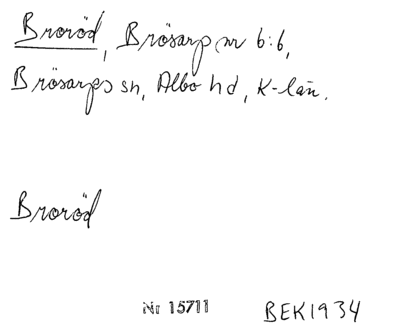 Broröd, Brösarp nr 6:6,
Brösarps sn, Albo hd, K-län.
Broröd
Nr 15711 BEK1934